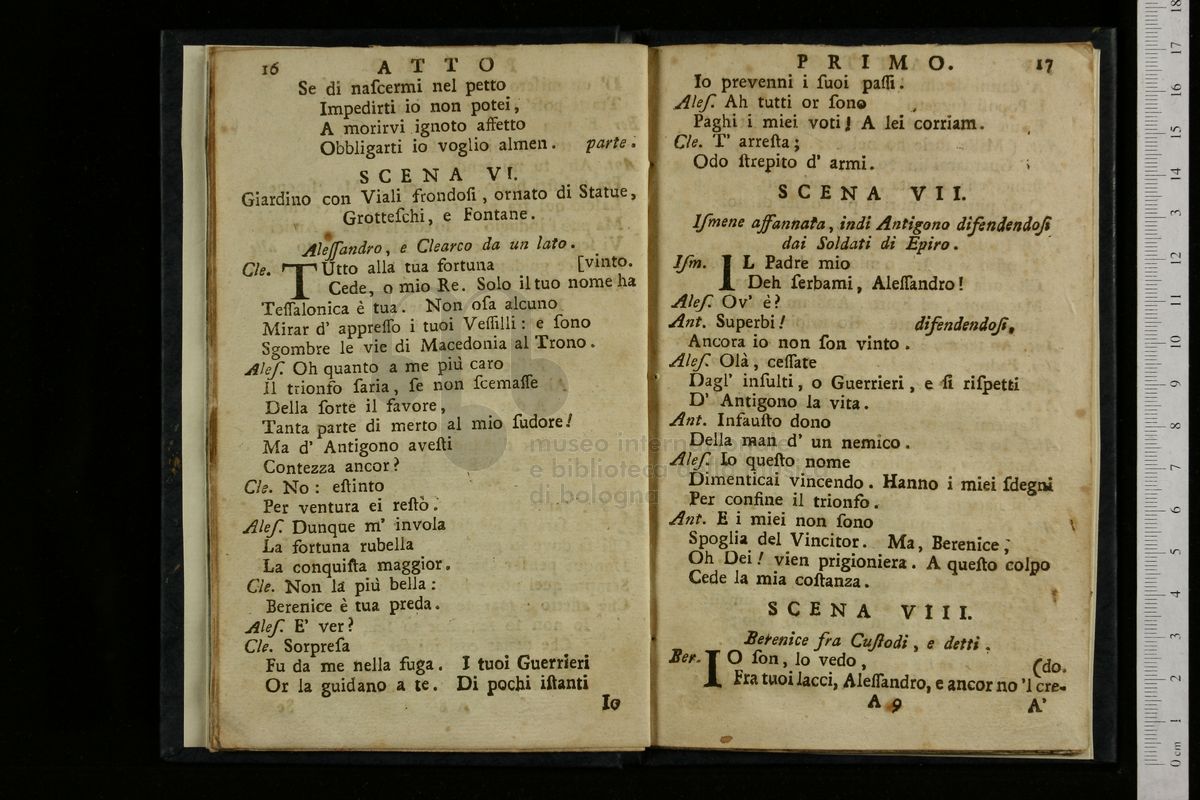 16 ATTO
Se di naſcermi nel petto
Impedirti io non potei,
A morirvi ignoto affetto
Obbligarti io voglio almen. parte.
SCENA VI.
Giardino con Viali frondoſi, ornato di Statue,
Grotteſchi, e Fontane.
Aleſſandro, e Clearco da un lato.
Cle. TUtto alla tua fortuna [vinto.
Cede, o mio Re. Solo il tuo nome ha
Teſſalonica è tua. Non oſa alcuno
Mirar d' appreſſo i tuoi Veſſilli: e ſono
Sgombre le vie di Macedonia al Trono.
Aleſ. Oh quanto a me più caro
Il trionfo ſaria, ſe non ſcemaſſe
Della ſorte il favore,
Tanta parte di merto al mio ſudore!
Ma d' Antigono aveſti
Contezza ancor?
Cle. No: eſtinto
Per ventura ei reſtò.
Aleſ. Dunque m' invola
La fortuna rubella
La conquiſta maggior.
Cle. Non la più bella:
Berenice è tua preda.
Aleſ. E' ver?
Cle. Sorpreſa
Fu da me nella fuga. I tuoi Guerrieri
Or la guidano a te. Di pochi iſtanti
Io
PRIMO. 17
Io prevenni i ſuoi paſſi.
Aleſ. Ah tutti or ſono
Paghi i miei voti! A lei corriam.
Cle. T' arreſta;
Odo ſtrepito d' armi.
SCENA VII.
Iſmene affannata, indi Antigono difendendoſi
dai Soldati di Epiro.
Iſm. IL Padre mio
Deh ſerbami, Aleſſandro!
Aleſ. Ov' è?
Ant. Superbi! difendendoſi.
Ancora io non ſon vinto.
Aleſ. Olà, ceſſate
Dagl' inſulti, o Guerrieri, e ſi riſpetti
D' Antigono la vita.
Ant. Infauſto dono
Della man d' un nemico.
Aleſ. Io queſto nome
Dimenticai vincendo. Hanno i miei ſdegni
Per confine il trionfo.
Ant. E i miei non ſono
Spoglia del Vincitor. Ma, Berenice,
Oh Dei! vien prigioniera. A queſto colpo
Cede la mia coſtanza.
SCENA VIII.
Berenice fra Cuſtodi, e detti.
Ber. IO ſon, lo vedo, (do.
Fra tuoi lacci, Aleſſandro, e ancor no 'l cre-
A 9 A'
museo internazionale
e biblioteca della musica
di bologna
0 cm 1 2 3 4 5 6 7 8 9 10 11 12 13 14 15 16 17 18